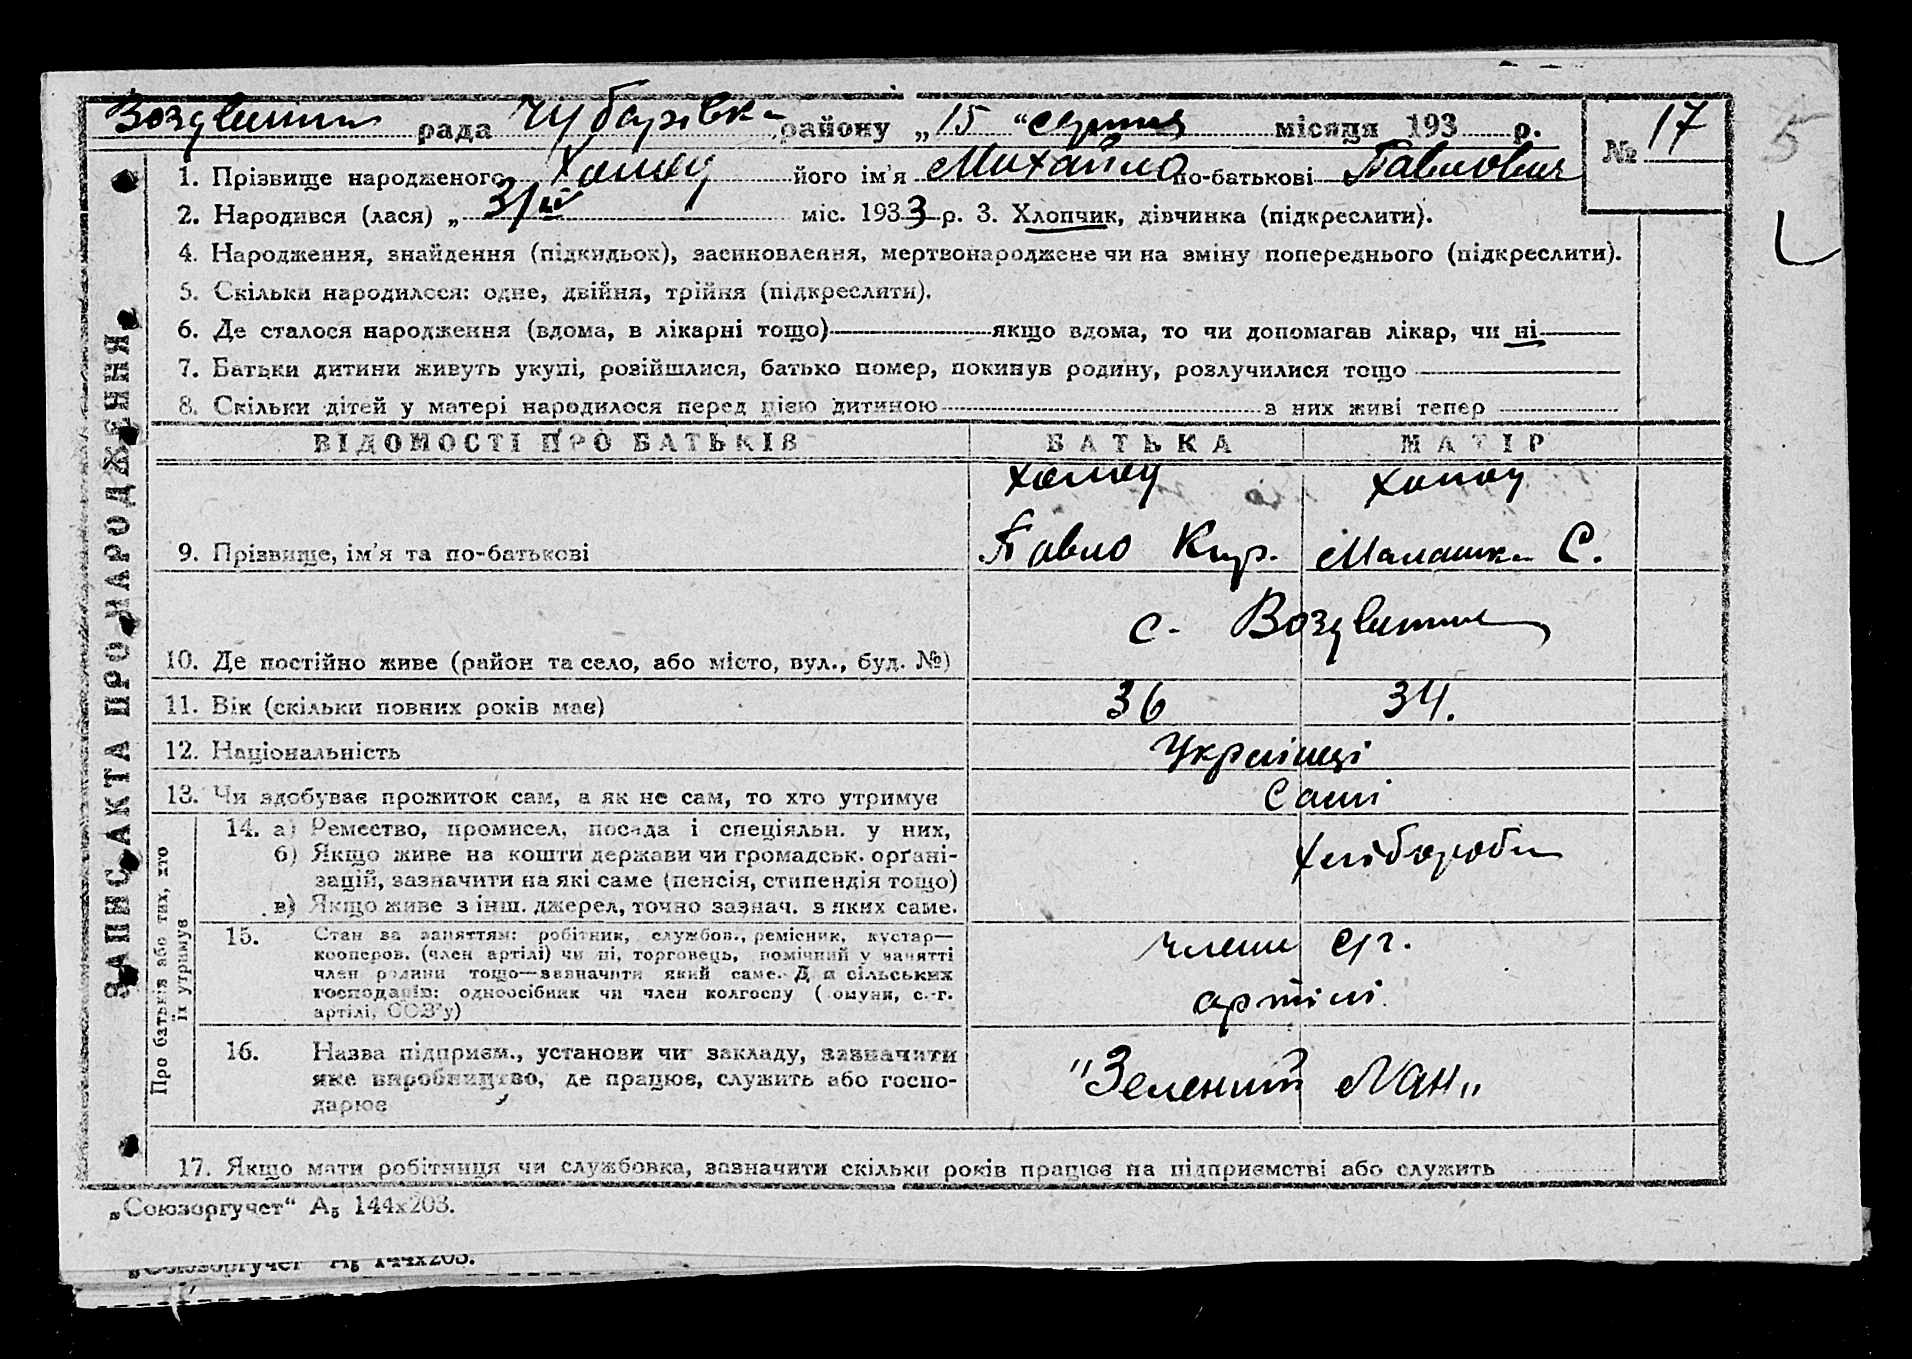 Воздвижен рада Чубарівка району „15 “ серпня місяця 193 р. № 17
5
1. Прізвище народженого Хомоу його ім'я Михайло по-батькові Павлович
2. Народився (лася) „ 3/IV міс. 1933 р. 3. Хлопчик, дівчинка (підкреслити).
4. Народження, знайдення (підкидьок), засиновлення, мертвонароджене чи на зміну попереднього (підкреслити).
5. Скільки народилося: одне, двійня, трійня (підкреслити).
6. Де сталося народження (вдома, в лікарні тощо) якщо вдома, то чи допомагав лікар, чи ні
7. Батьки дитини живуть укупі, розійшлися, батько помер, покинув родину, розлучилися тощо
8. Скільки дітей у матері народилося перед цією дитиною з них живі тепер
ЗАПИС АКТА ПРО НАРОДЖЕННЯ
ВІДОМОСТІ ПРО БАТЬКІВ БАТЬКА МАТІР
Хомоу Хомоу
9. Прізвище, ім'я та по-батькові Павло Кир. Малашка С.
с.
10. Де постійно живе (район та село, або місто, вул., буд. №)
11. Вік (скільки повних років має) 36 34.
12. Національність Українці
13. Чи здобуває прожиток сам, а як не сам, то хто утримує Самі
Про батьків або тих, хто їх утримує
14. а) Ремество, промисел, посада і спеціяльн. у них, Хлібороби
б) Якщо живе на кошти держави чи громадськ. орґані-
зацій, зазначити на які саме (пенсія, стипендія тощо)
в) Якщо живе з інш. джерел, точно зазнач. з яких саме.
15. Стан за заняттям: робітник, службов., ремісник, кустар—
кооперов. (член артілі) чи ні, торговець, помічний у занятті
член родини тощо—зазначити який саме. Для сільських
господарів: одноосібник чи член колгоспу (комуни, с.-г.
артілі, СОЗ'у)
члени с/г.
артілі
16. Назва підприєм., установи чи закладу, зазначити
яке виробництво, де працює, служить або госпо-
дарює
"Зелений Лан"
17. Якщо мати робітниця чи службовка, зазначити скільки років працює на підприємстві або служить
„Союзоргучет“ А5 144х203.
„Союзоргучет А5 144х203.